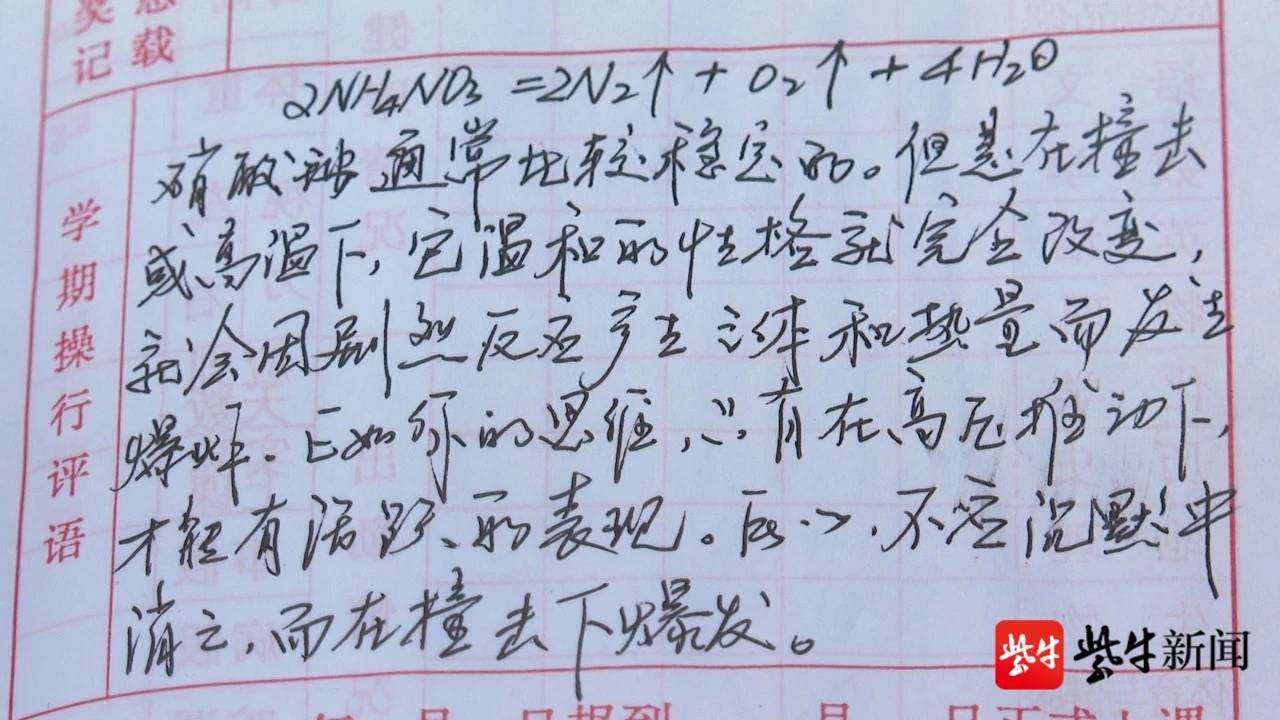 奖 惩
记 载
2NH4NO3 = 2N2↑ + O2↑ + 4H2O
硝酸铵通常比较稳定的。但是在撞击
或高温下,它温和的性格就完全改变,
就会因剧烈反应产生气体和热量而发生
爆炸。正如你的思维,只有在高压推动下,
才能有活跃的表现。所以,不应沉默中
消亡,而在撞击下爆发。
学期操行评语
紫牛 紫牛新闻